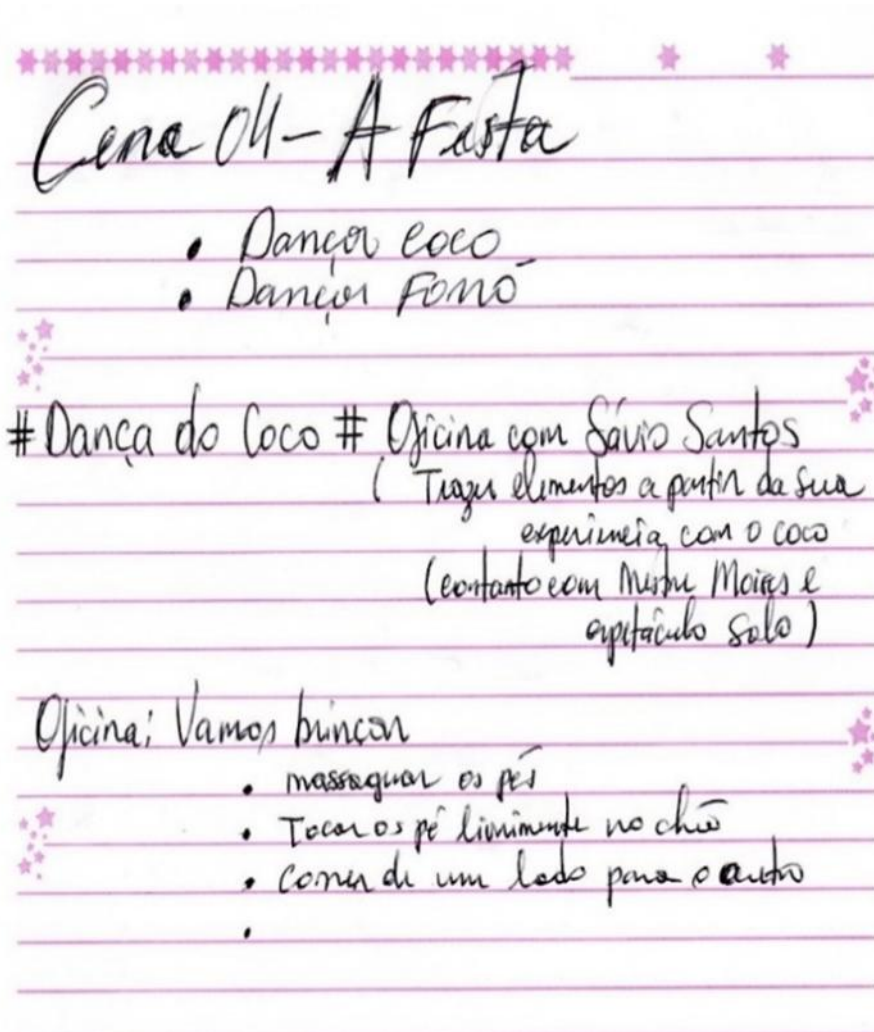 Cena 04 - A Festa
• Dançar coco
• Dançar Forró
# Dança do Coco # Oficina com Sávio Santos
( Trazer elementos a partir da sua
experiencia com o coco
(contanto com Mestre Moises e
espetáculo solo )
Oficina: Vamos brincar
• massagear os pés
• Tocar os pé livrimente no chão
• correr de um lado para o outro
•